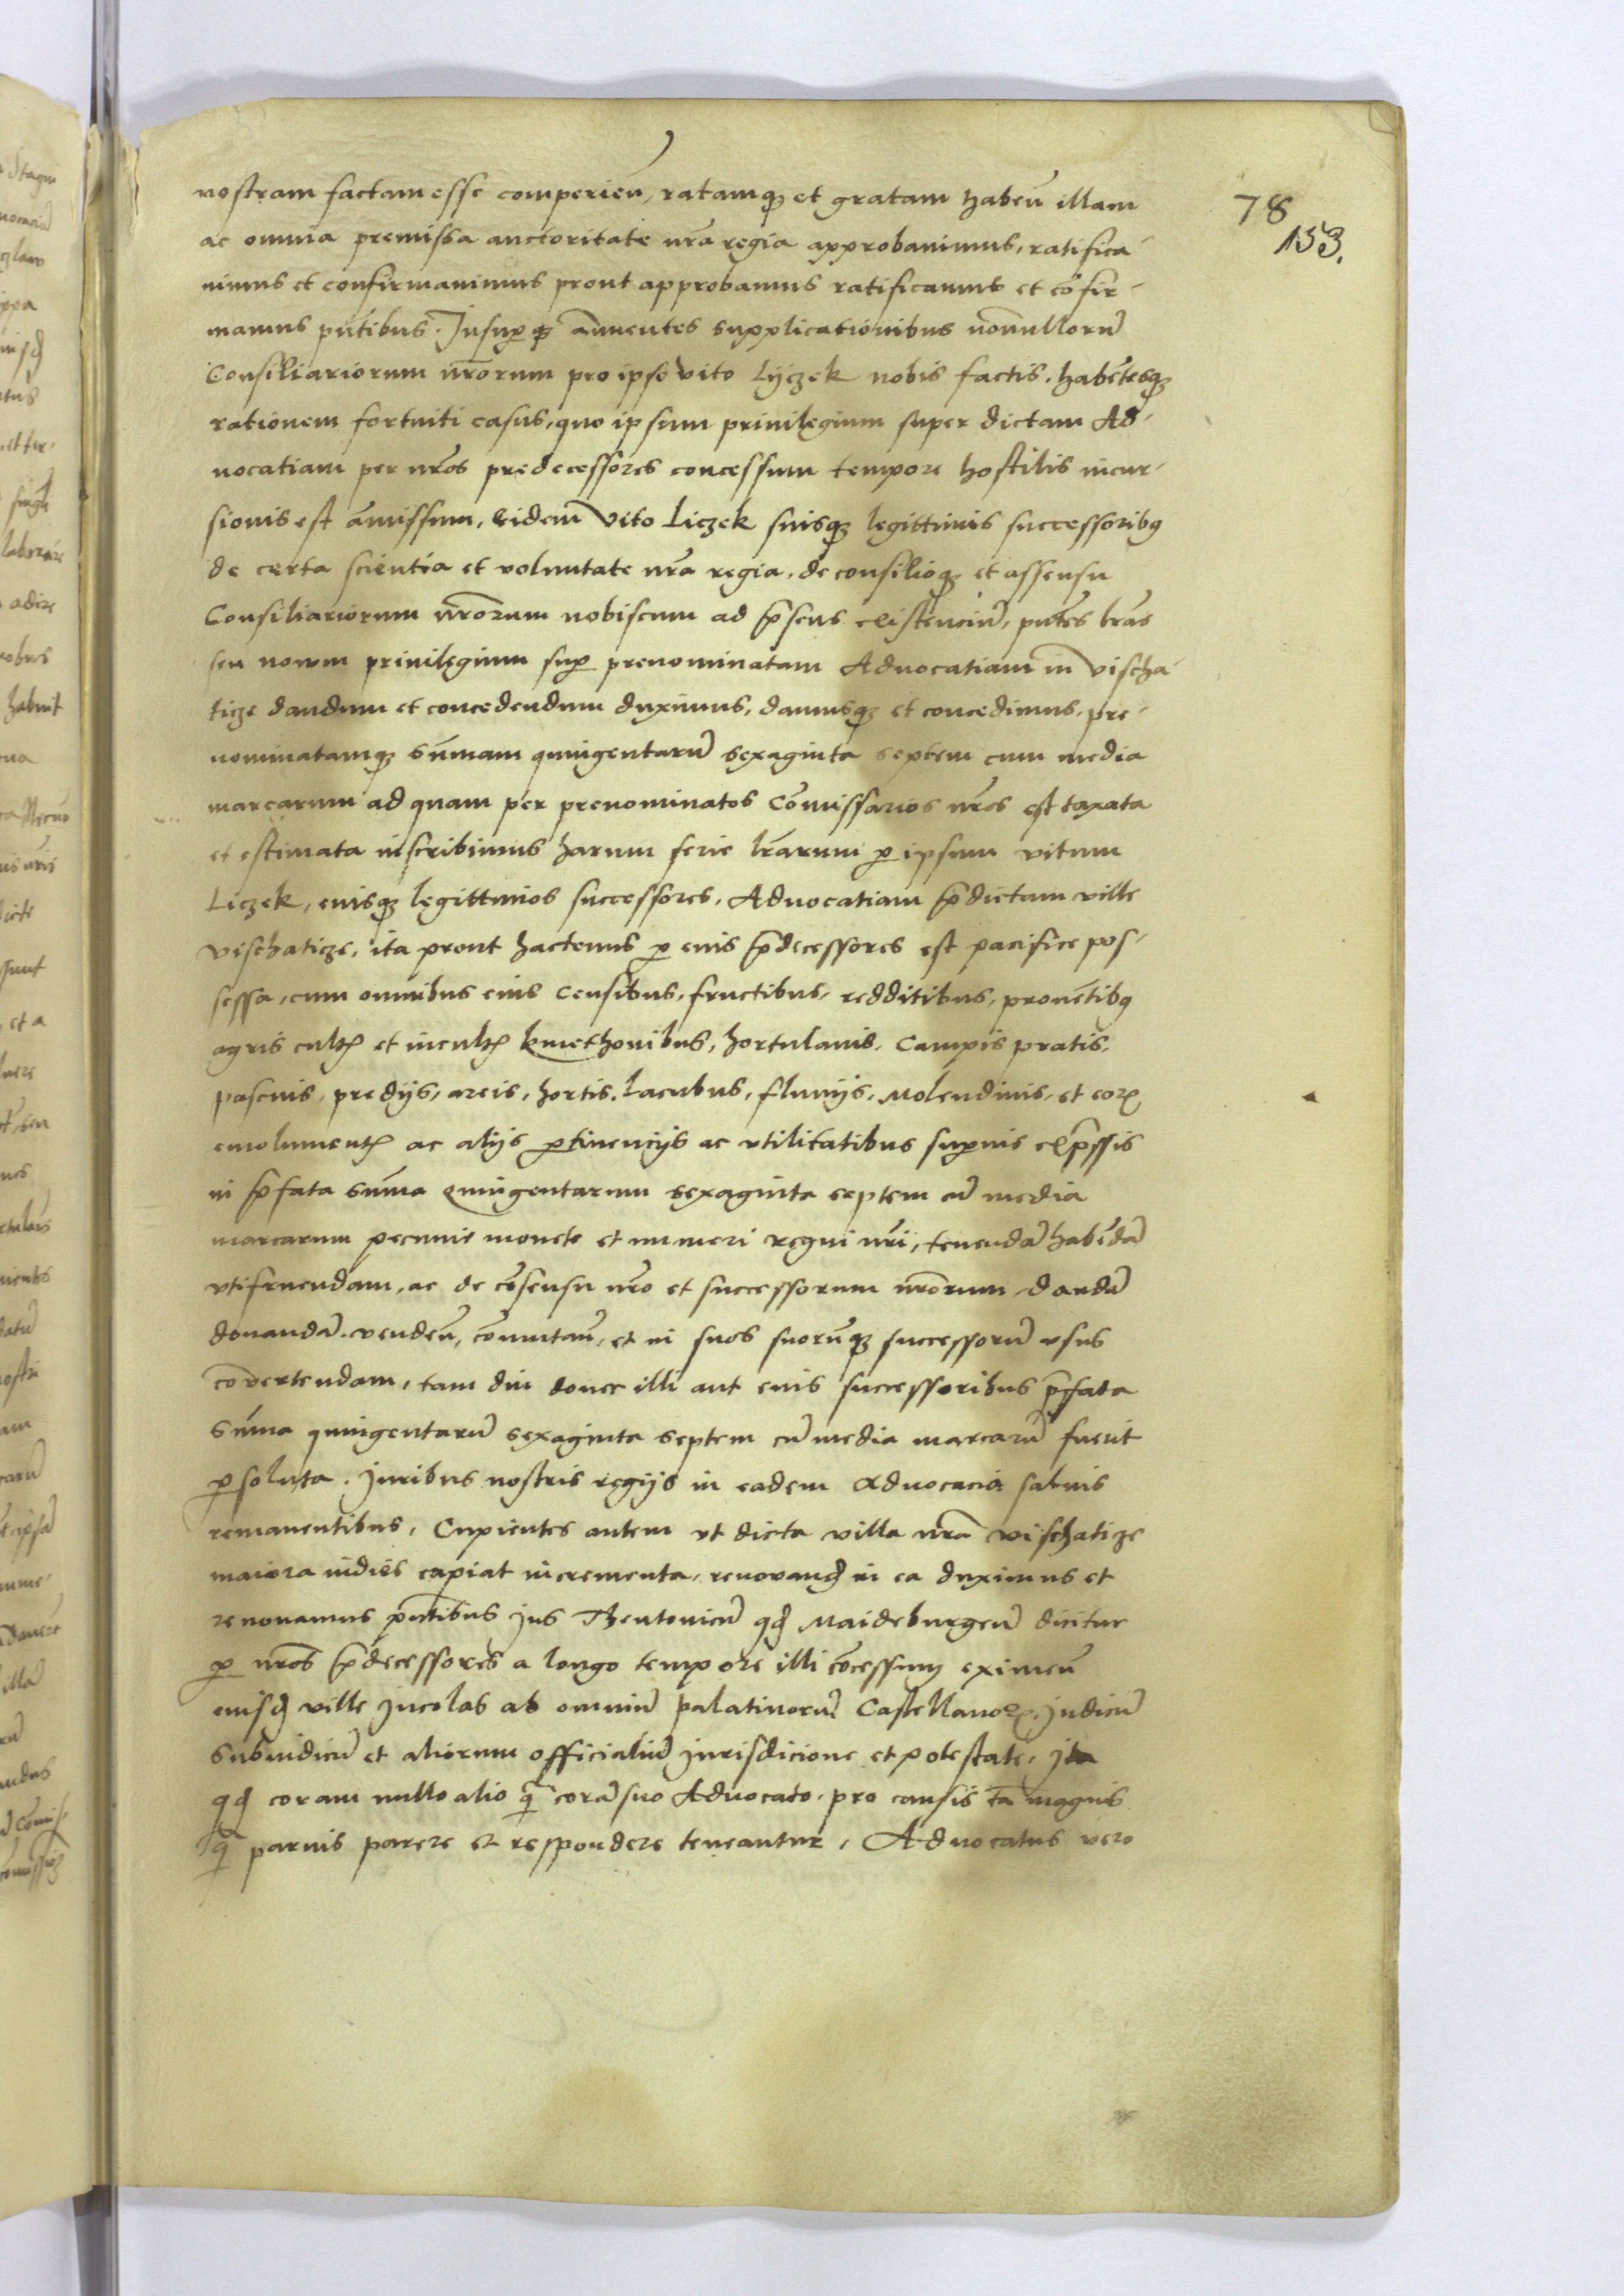 78
153.
nostram factam esse comperien̄, ratamqȝ et gratam haben̄ illam
ac omnia premissa auctoritate nr̄a regia approbauimus, ratifica-
uimus et confirmauimus prout approbamus ratificamus et cōfir-
mamus pn̄tibus. Insuꝑqȝ ānuentes supplicationibus nōnullorū
Consiliariorum nr̄orum pro ipso vito Lyczek nobis factis. habētesqȝ
rationem fortuiti casus, quo ipsum priuilegium super dictam Ad-
uocatiam per nr̄os predecessores concessum tempore hostilis incur-
sionis est āmissum, eidem Vito Liczek suisqȝ legittimis successoribꝰ
de certa scientia et voluntate nr̄a regia, de consilioqȝ et assensu
Consiliariorum nr̄orum nobiscum ad p̄sens existenciū, pn̄tes lr̄as
seu nouum priuilegium suꝑ prenominatam Aduocatiam in Vischa-
ticze dandum et concedendum duximus, damusqȝ et concedimus, pre-
nominatamqȝ sūmam quingentarū sexaginta septem cum media
marcarum ad quam per prenominatos Cōmissarios nr̄os est taxata
et estimata inscribimus harum serie lr̄arum ꝑ ipsum vitum
Liczek, eiusqȝ legittimos successores, Aduocatiam p̄dictam ville
Vischaticze, ita prout hactenus ꝑ eius p̄decessores est pacifice pos-
sessa, cum omnibus eius censibus, fructibus, redditibus, prouētibꝰ
agris cultꝭ et incultꝭ kmethonibus, hortulanis, Campis pratis,
pascuis, predijs, areis, hortis, lacubus, fluuijs, Molendinis, et eoꝝ
emolumentꝭ ac alijs ꝑtinencijs ac vtilitatibus suꝑius exp̄ssis
in p̄fata sūma quingentarum sexaginta septem cū media
marcarum pecunie monete et numeri regni nr̄i, tenendā habēdā
vtifruendam, ac de cōsensu nr̄o et successorum nr̄orum dandā
donandā, venden̄, cōmutan̄, et in suos suorūqȝ successorū vsus
cōvertendam, tam diu donec illi aut eius successoribus p̄fata
sūma quingentarū sexaginta septem cū media marcarū fuerit
ꝑsoluta. Juribus nostris regijs in eadem Aduocacia saluis
remanentibus, Cupientes autem vt dicta villa nr̄a Vischaticze
maiora indies capiat incrementa, renouand̄ in ea duximus et
renouamus pn̄tibus Jus Theutonicū qd̄ Maideburgen̄ dicitur
ꝑ nr̄os p̄decessores a longo tempore illi cōcessum eximen̄
eiusd̄ ville Incolas ab omniū palatinorū Castellanoꝝ Judicū
Subiudicū et aliorum officialiū jurisdicione et potestate, Ita
qd̄ coram nullo alio q̄ corā suo Aduocato, pro causis tā magnis
q̄ paruis parere et respondere teneantur, Aduocatus vero